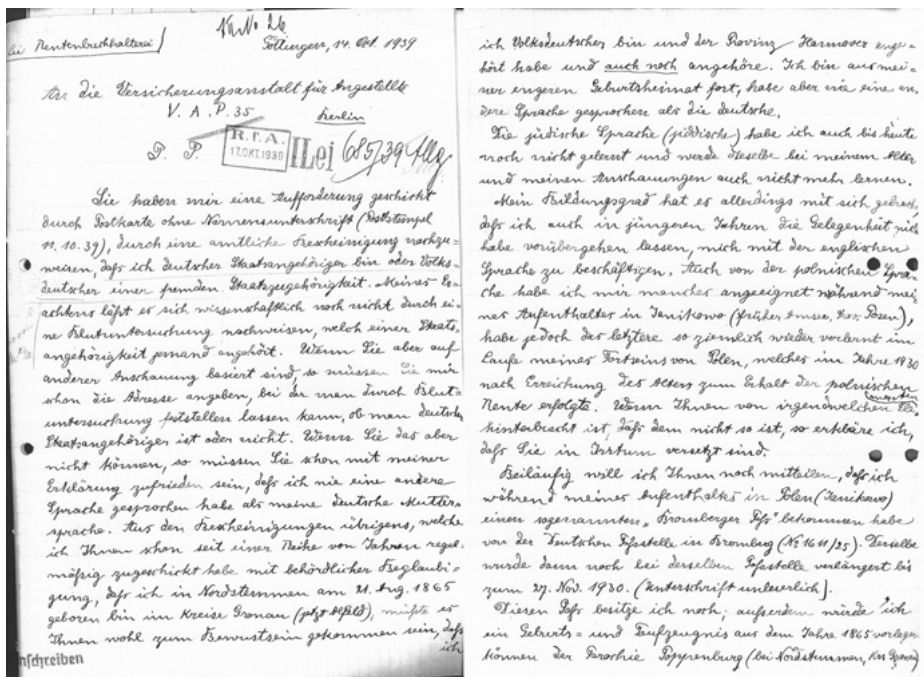 NB No 26
Rentenbuchhalterei
Göttingen, 14. Okt. 1939
An die Versicherungsanstalt für Angestellte
V. A. P. 35
Berlin
P. P.
R.f.A.
17. OKT. 1939
II Lei 685/39
Sie haben mir eine Aufforderung geschickt
durch Postkarte ohne Namensunterschrift (Poststempel
11.10.39), durch eine amtliche Bescheinigung nachzu=
weisen, daß ich deutscher Staatsangehöriger bin oder Volks-
deutscher einer fremden Staatzugehörigkeit. Meines Er-
achtens läßt es sich wissenschaftlich noch nicht durch ei-
ne Blutuntersuchung nachweisen, welch einer Staats-
angehörigkeit jemand angehört. Wenn Sie aber auf
anderer Anschauung basiert sind, so müssen Sie mir
schon die Adresse angeben, bei der man durch Blut-
untersuchung feststellen lassen kann, ob man deutscher
Staatsangehöriger ist oder nicht. Wenn Sie das aber
nicht können, so müssen Sie schon mit meiner
Erklärung zufrieden sein, daß ich nie eine andere
Sprache gesprochen habe als meine deutsche Mutter-
sprache. Aus den Bescheinigungen übrigens, welche
ich Ihnen schon seit einer Reihe von Jahren regel-
mäßig zugeschickt habe mit behördlicher Beglaubi-
gung, daß ich in Nordstemmen am 21. Aug. 1865
geboren bin im Kreise Gronau (jetzt Alfeld), müßte es
Ihnen wohl zum Bewustsein gekommen sein, daß
ich
nschreiben
ich Volksdeutscher bin und der Provinz Hannover ange-
hört habe und auch noch angehöre. Ich bin aus mei-
ner engeren Geburtsheimat fort, habe aber nie eine an-
dere Sprache gesprochen als die deutsche.
Die jüdische Sprache (jiddische) habe ich auch bis heute
noch nicht gelernt und werde dieselbe bei meinem Alter
und meinen Anschauungen auch nicht mehr lernen.
Mein Bildungsgrad hat es allerdings mit sich gebracht,
daß ich auch in jüngeren Jahren die Gelegenheit nicht
habe vorübergehen lassen, mich mit der englischen
Sprache zu beschäftigen. Auch von der polnischen Spra-
che habe ich mir manches angeeignet während mei
nes Aufenthaltes in Janikowo (früher Amsee, Posen),
habe jedoch das letztere so ziemlich wieder verlernt im
Laufe meines Fortseins von Polen, welches im Jahre 1930
nach Erreichung des Alters zum Erhalt der polnischen
Rente erfolgte. Wenn Ihnen von irgendwelchen
hinterbracht ist, daß dem nicht so ist, so erkläre ich,
daß Sie in Irrtum versetzt sind.
Beiläufig will ich Ihnen noch mitteilen, daß ich
während meines Aufenthaltes in Polen (Janikowo)
einen sogenannten „Bromberger Paß" bekommen habe
von der Deutschen Paßstelle in Bromberg (No 1611/25). Derselbe
wurde dann noch bei derselben Paßstelle verlängert bis
zum 27. Nov. 1930. (Unterschrift unleserlich).
Diesen Paß besitze ich noch; außerdem würde ich
ein Geburts= und Taufzeugnis aus dem Jahre 1865 vorlegen
können der Parochie Poppenburg (bei Nordstemmen, Krs Gronau)